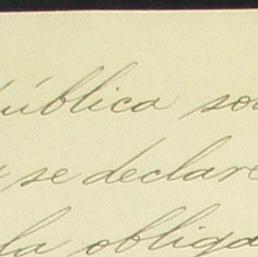 ública so
se declare
la obliga